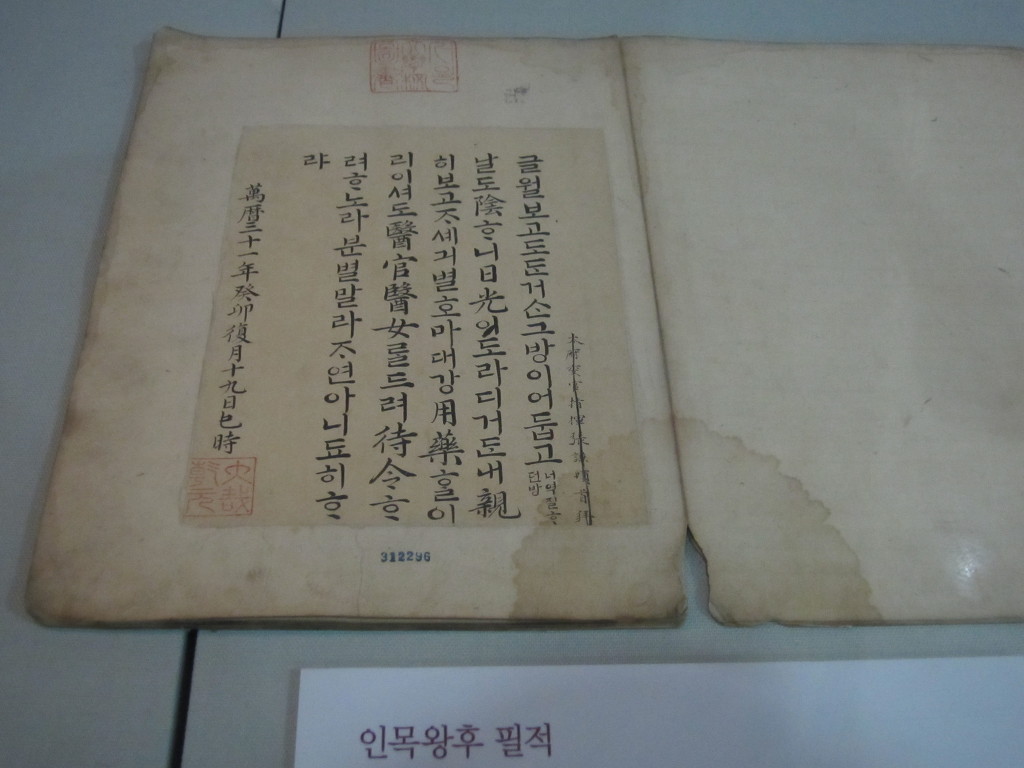 글월보고도ᄃᆞᆫ거ᄉᆞᆫ그방이어둡고
너역질ᄒᆞ
던방
날도陰ᄒᆞ니日光이도라디거든내親
히보고ᄌᆞ셰긔별호마대강用藥ᄒᆞᆯ이
리이셔도醫官醫女ᄅᆞᆯ드려待令ᄒᆞ
려ᄒᆞ노라분별말라ᄌᆞ연아니됴히ᄒᆞ
랴
萬曆三十一年癸卯復月十九日巳時
312296
인목왕후 필적